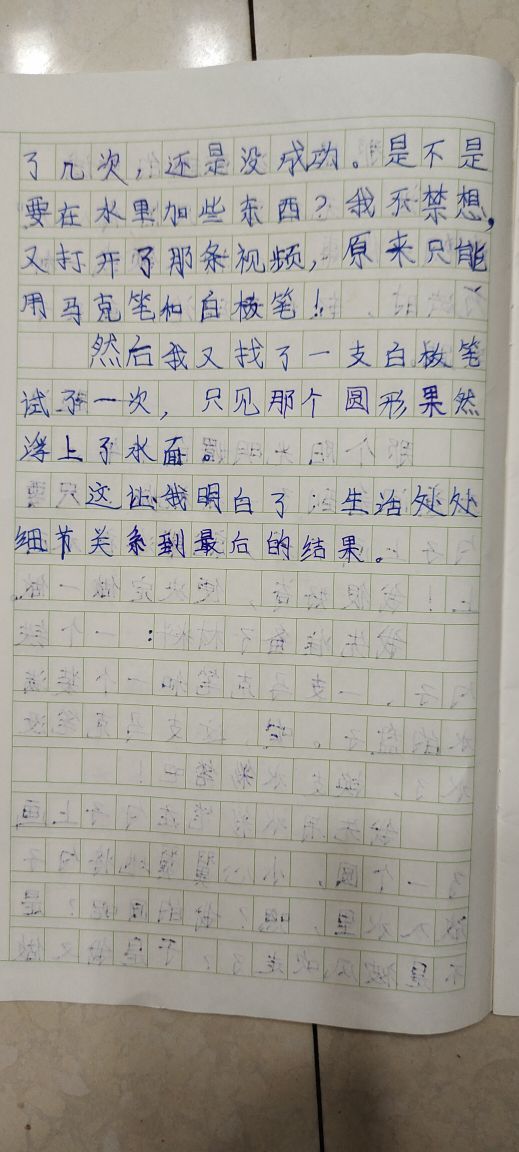 了几次，还是没成功。是不是
要在水里加些东西？我不禁想，
又打开了那条视频，原来只能
用马克笔和白板笔！
然后我又找了一支白板笔
试了一次，只见那个圆形果然
浮上了水面。
这让我明白了：生活处处
细节关系到最后的结果。